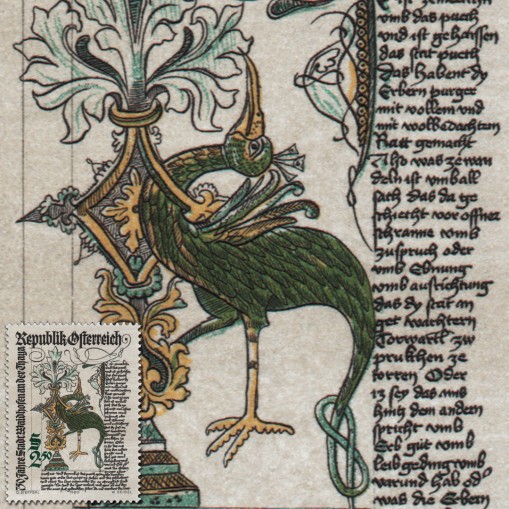 vmb das puch
vnd ist gehaissen
das stat puech
Das habent dy
Erbern purger
mit vollem vnd
mit wolbedachten
Ratt gemacht
was zewan
deln ist vmb all
sach das da ge
schiecht vor offner
schranne vmb
zuspruch oder
vmb Ehnung
vmb ausrichtung
das dy stat in
get wachtern
Torwartl zw
prukhen ze
torren Oder
sey das ains
hinz dem andern
spricht vmb
Erb güt vmb
leib geding vmb
varund hab od
was die Erbern
Republik Österreich
750 Jahre Stadt Waidhofen an der Thaya
S 2.50